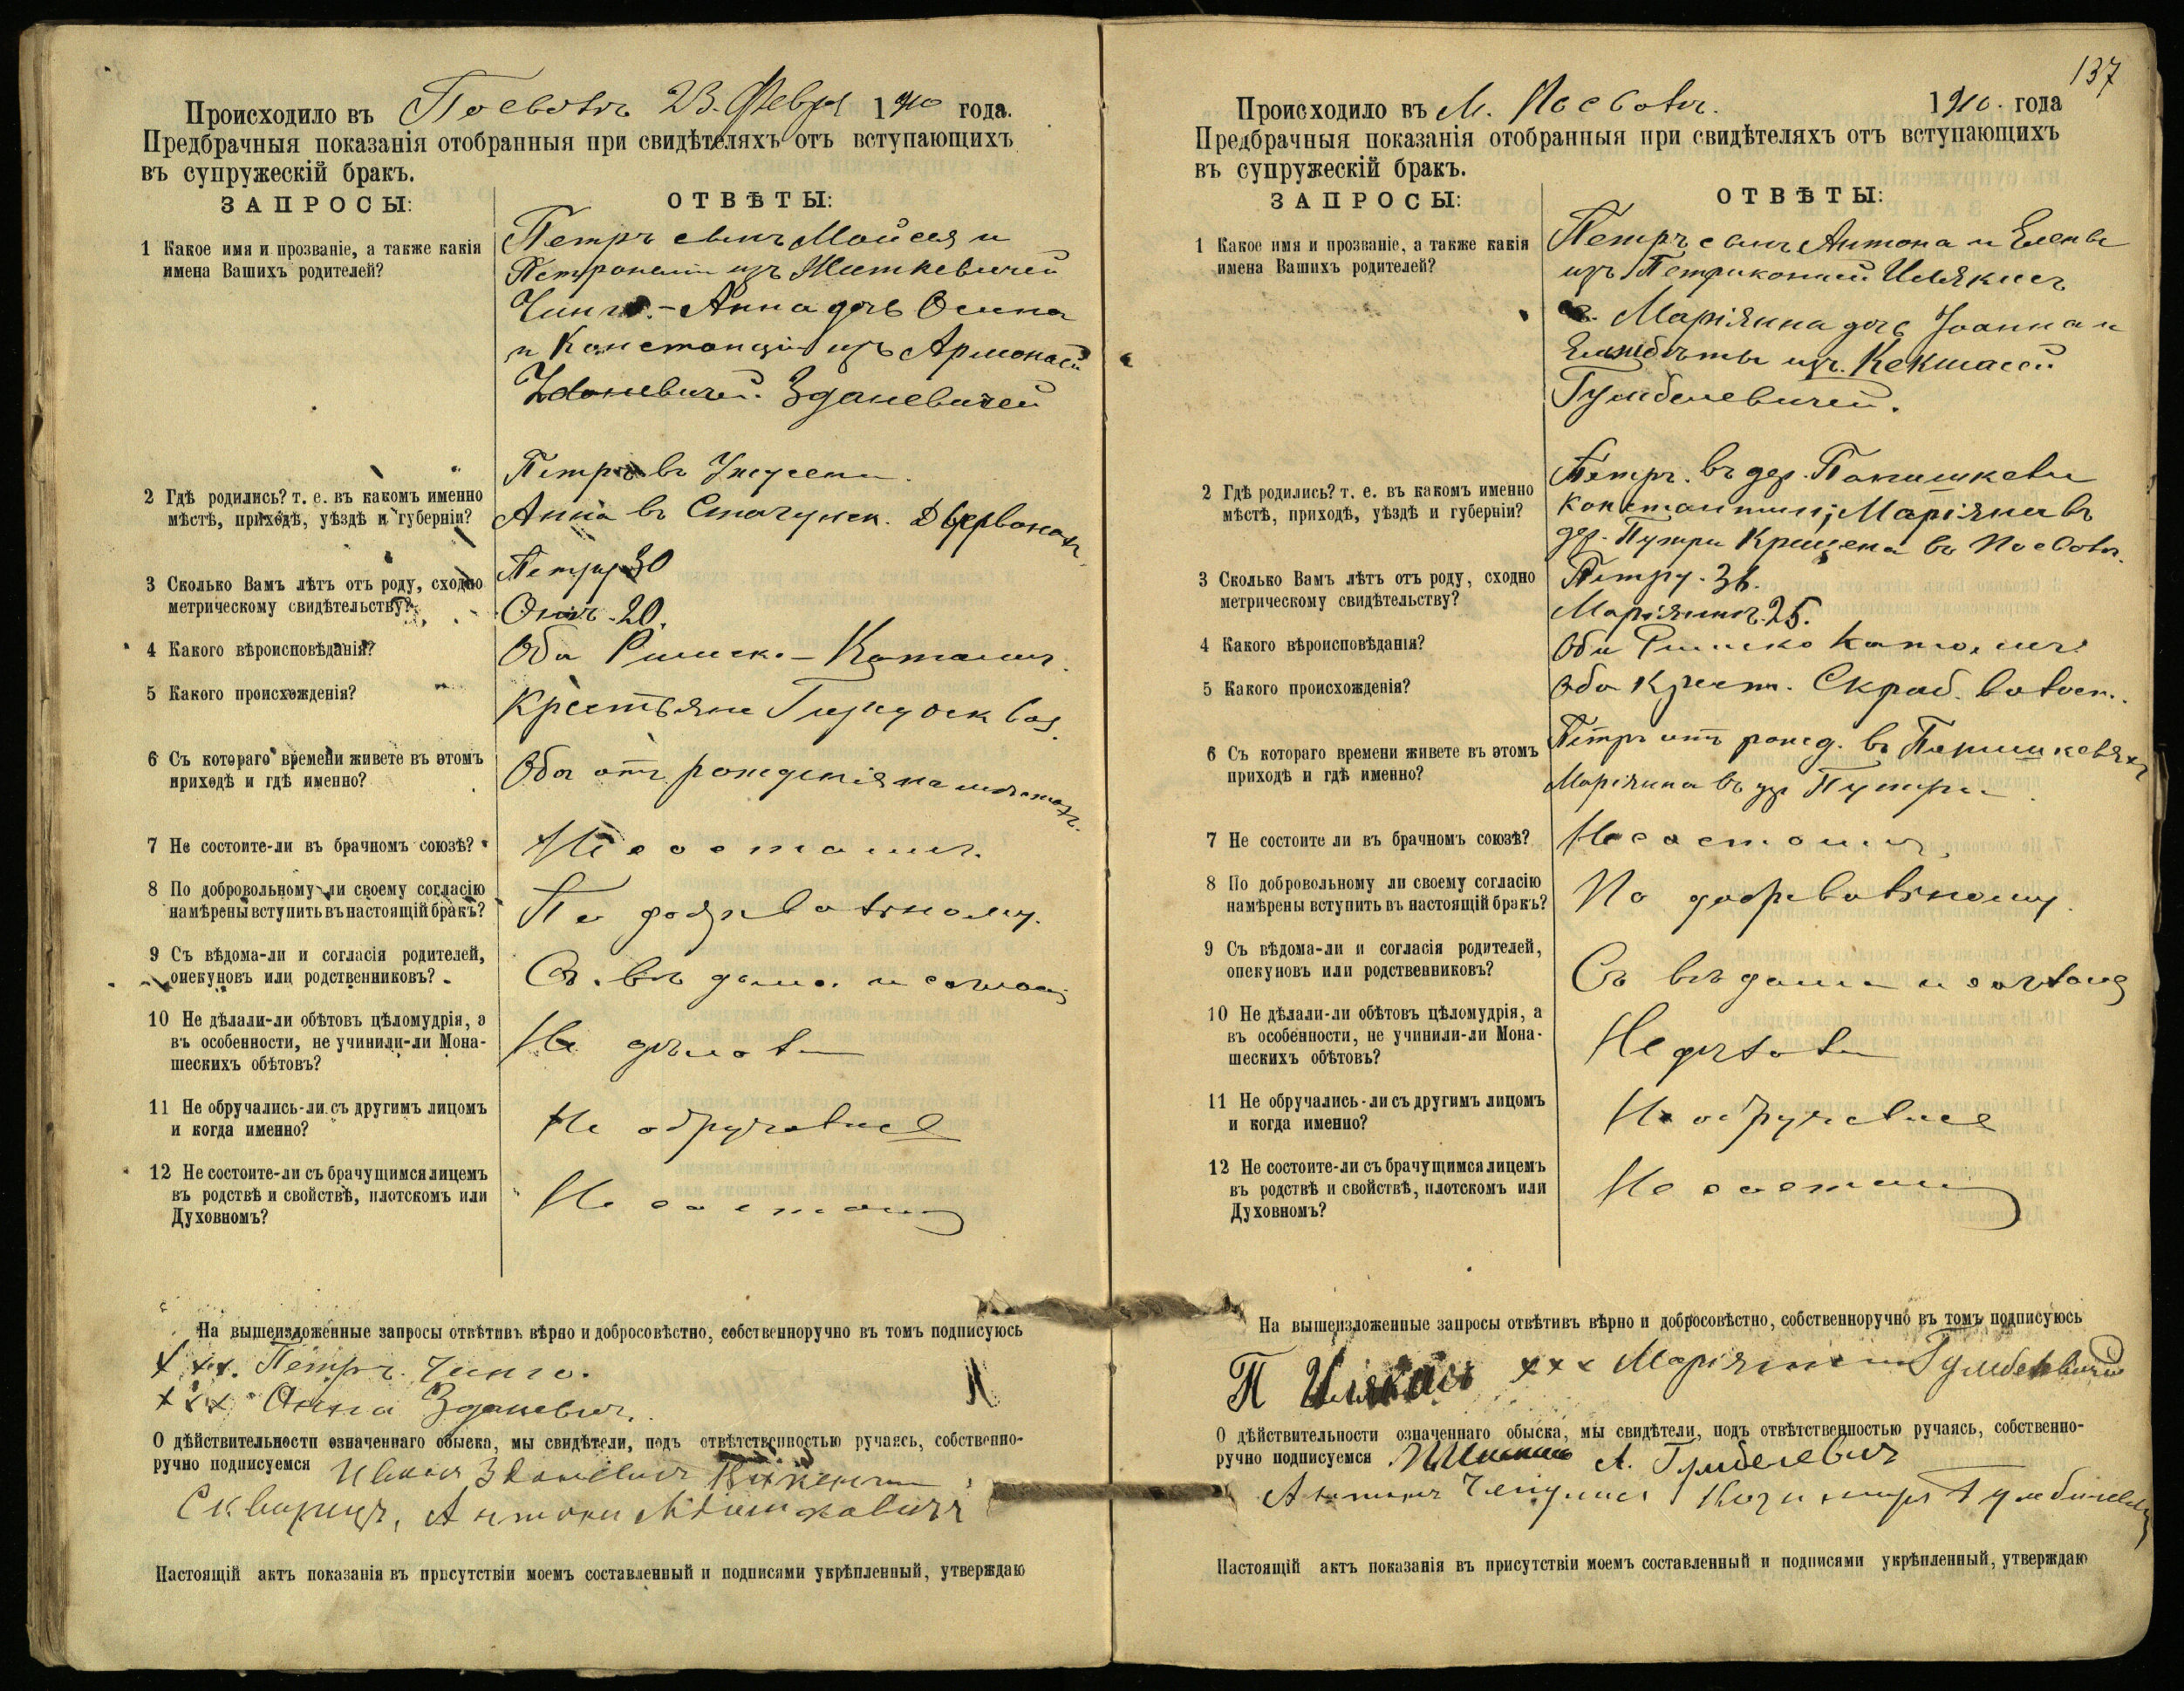 Происходило въ Посволь 23. Февр 1910 года.
Предбрачныя показанія отобранныя при свидѣтеляхъ отъ вступающихъ
въ супружескій бракъ.
ЗАПРОСЫ:
ОТВѢТЫ:
1 Какое имя и прозваніе, а также какія
имена Вашихъ родителей?
Петръ сынъ Мойсея и
Петронели изъ Житкевичей
Чинго. - Анна дочь Осипа
и Констанціи изъ Армонасъ
Здоневичей. Зданевичей
2 Гдѣ родились? т. е. въ какомъ именно
мѣстѣ, приходѣ, уѣздѣ и губерніи?
Петръ въ
Анна въ
3 Сколько Вамъ лѣтъ отъ роду, сходно
метрическому свидѣтельству?
Петру 30
20.
4 Какого вѣроисповѣданія?
Оба Римск. - Католич.
5 Какого происхожденія?
Крестьяне
6 Съ котораго времени живете въ этомъ
приходѣ и гдѣ именно?
Оба отъ рожденія на мѣстахъ.
7 Не состоите-ли въ брачномъ союзѣ?
Не состоимъ.
8 По добровольному ли своему согласію
намѣрены вступить въ настоящій бракъ?
По добровольному.
9 Съ вѣдома-ли и согласія родителей,
опекуновъ или родственниковъ?
Съ вѣдома и соглас
10 Не дѣлали-ли обѣтовъ цѣломудрія, а
въ особенности, не учинили-ли Мона-
шескихъ обѣтовъ?
Не дѣлали
11 Не обручались-ли съ другимъ лицомъ
и когда именно?
Не обручались
12 Не состоите-ли съ брачущимся лицемъ
въ родствѣ и свойствѣ, плотскомъ или
Духовномъ?
Не состоим
На вышеизложенные запросы отвѣтивъ вѣрно и добросовѣстно, собственноручно въ томъ подписуюсь
xxx. Петръ. Чинго.
xxx Анна Зданевич.
О дѣйствительности означеннаго обыска, мы свидѣтели, подъ отвѣтственностью ручаясь, собственно-
ручно подписуемся Иванъ Здоневичъ
Антони
Настоящій актъ показанія въ присутствіи моемъ составленный и подписями укрѣпленный, утверждаю
137
Происходило въ М. Посволь. 1910. года
Предбрачныя показанія отобранныя при свидѣтеляхъ отъ вступающихъ
въ супружескій бракъ.
ЗАПРОСЫ:
ОТВѢТЫ:
1 Какое имя и прозваніе, а также какія
имена Вашихъ родителей?
Петръ сынъ Антона и Елены
изъ
Маріянна дочь Іоанна и
Елжбѣты изъ
Гумбелевичей.
2 Гдѣ родились? т. е. въ какомъ именно
мѣстѣ, приходѣ, уѣздѣ и губерніи?
Петръ. въ дер.
Маріяна въ
дер. Путри Крещена въ Посволь.
3 Сколько Вамъ лѣтъ отъ роду, сходно
метрическому свидѣтельству?
Петру.
Маріяннѣ. 25.
4 Какого вѣроисповѣданія?
Оба Римско Католич
5 Какого происхожденія?
Оба Крест. Скраб. волост.
6 Съ котораго времени живете въ этомъ
приходѣ и гдѣ именно?
Петръ отъ рожд. въ
Маріянна въ дер Путри
7 Не состоите ли въ брачномъ союзѣ?
Не состоимъ
8 По добровольному ли своему согласію
намѣрены вступить въ настоящій бракъ?
По добровольному.
9 Съ вѣдома-ли и согласія родителей,
опекуновъ или родственниковъ?
Съ вѣдома и соглас
10 Не дѣлали-ли обѣтовъ цѣломудрія, а
въ особенности, не учинили-ли Мона-
шескихъ обѣтовъ?
Не дѣлали
11 Не обручались-ли съ другимъ лицомъ
и когда именно?
Не обручались
12 Не состоите-ли съ брачущимся лицемъ
въ родствѣ и свойствѣ, плотскомъ или
Духовномъ?
Не состоим
На вышеизложенные запросы отвѣтивъ вѣрно и добросовѣстно, собственноручно въ томъ подписуюсь
П xxx Маріянна
О дѣйствительности означеннаго обыска, мы свидѣтели, подъ отвѣтственностью ручаясь, собственно-
ручно подписуемся А. Гумбелевич
Антонъ
Настоящій актъ показанія въ присутствіи моемъ составленный и подписями укрѣпленный, утверждаю